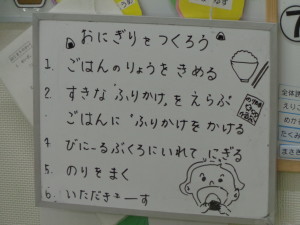 おにぎりをつくろう
1. ごはんのりょうをきめる
2. すきな"ふりかけ"をえらぶ
ごはんに"ふりかけをかける
4 びにーるぶくろにいれて にぎる
5. のりをまく
6. いただきまーす
うめ
全体
えりこ
めか
たくみ
まさき